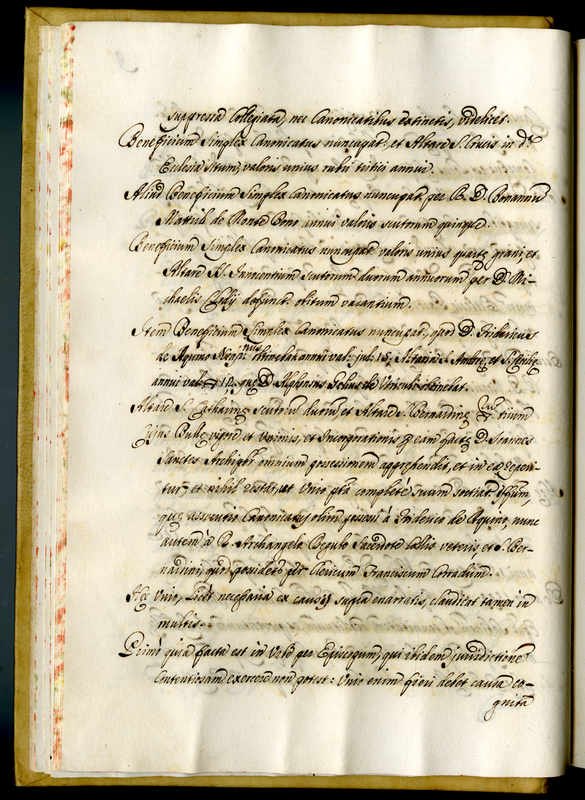 suppressa Collegiata, nec Canonicatibus extinctis, videlicet.
Beneficium Simplex Canonicatus nuncupat. et Altare S. Crucis in d.ª
Ecclesia situm, valoris unius rubri tritici annui.
Aliud Beneficium Simplex Canonicatus nuncupat. per B. D. Bonannum
de Monte Bono annui valoris scutorum quinque.
Beneficium Simplex Canonicatus nuncupat. valoris unius quartæ grani et
Altare SS. Innocentium scutorum duorum annuorum per D. Mi-
chaelis defunct. obitum vacantium.
Item Beneficium Simplex Canonicatus nuncupat. per D. Fridericus
de Aquino obtinebat annui val. jul. 15. Altaria S. Andreæ et S.
annui val. 12. quæ D. Alphonsus de obtinebat.
Altare S. Catharinæ scutorum duorum et Altare S. Bernardini
Cujus Bullæ vigore et Unionis, et Incorporationis per eam factæ D. Joannes
Sanctes Archipbr omnium possessionem apprehendit, et in ea reperi-
tur, et nihil restat, ut Unio pta complete suum sortiat. effectum,
quam assecutio Canonicatus olim possessi à Friderico de Aquino, nunc
autem à D. Archangelo Regulo Sacerdote Callis veteris et S. Ber-
nardini, quod possidetur per Clericum Franciscum Corradinum.
Hæc Unio, licet necessaria ex causis supra enarratis, claudicat tamen in
multis.
Primo quia facta est in Urbe per Episcopum, qui ibidem jurisdictionem
contentiosam exercere non potest: Unio enim fieri debet causa co-
gnita